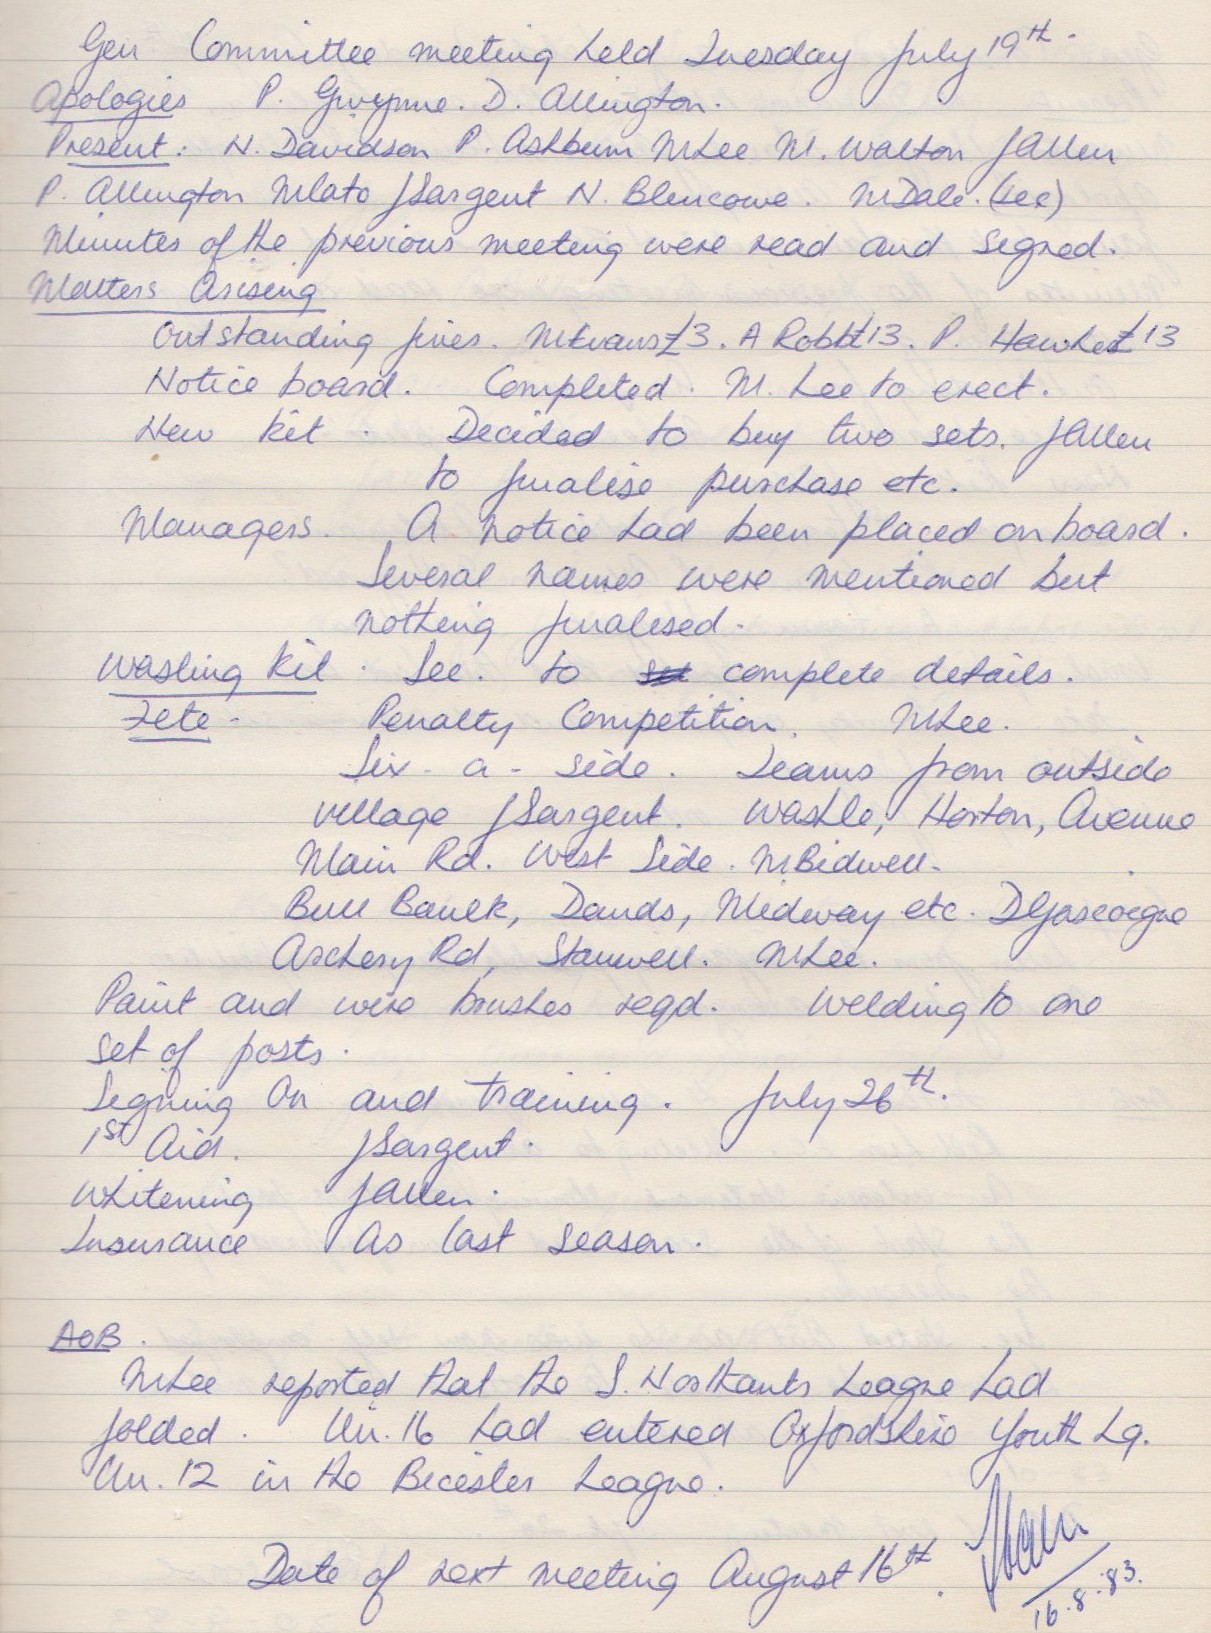 Gen Committee meeting held Tuesday July 19th.
Apologies P. Gwynne. D. Allington.
Present: N. Davidson P. Ashburn MLee M. Walton JAllen
P. Allington MLato JSargent N. Blencowe. MDale. (Sec)
Minutes of the previous meeting were read and signed.
Matters Arising
Outstanding fines. MEvans £3. A Robb £13. P. Hawkes £13
Notice board. Completed. M. Lee to erect.
New kit. Decided to buy two sets. JAllen
to finalise purchase etc.
Managers. A notice had been placed on board.
Several names were mentioned but
nothing finalised.
Washing kit. Sec. to complete details.
Fete. Penalty Competition. MLee.
Six-a-side. Teams from outside
village JSargent. Washle, Horton, Avenue
Main Rd. West Side. MBidwell.
Bull Baulk, Dands, Midway etc. DGascoigne
Archery Rd, Stanwell. MLee.
Paint and wire brushes reqd. Welding to one
set of posts.
Signing On and training. July 26th.
1st Aid. JSargent.
Whitening JAllen.
Insurance As last season.
AOB.
MLee reported that the S. Northants League had
folded. Un. 16 had entered Oxfordshire Youth Lg.
Un. 12 in the Bicester League.
Date of next meeting August 16th.
16.8.83.